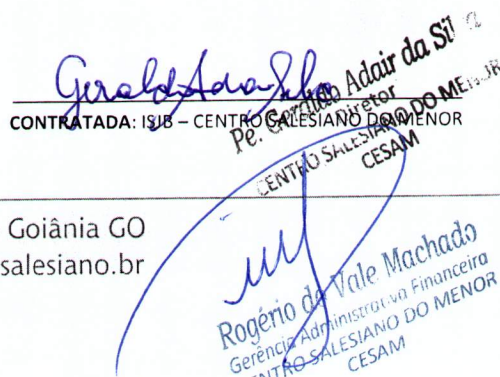 Geraldo Adair Silva
Pe. Geraldo Adair da Silva
Diretor
CENTRO SALESIANO DO MENOR
CESAM
CONTRATADA: ISJB – CENTRO SALESIANO DO MENOR
Goiânia GO
salesiano.br
Rogério do Vale Machado
Gerência Administrativa Financeira
CENTRO SALESIANO DO MENOR
CESAM